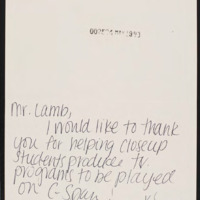 Mr. Lamb,
I would like to thank
you for helping closeup
students produce tv
programs to be played
on C-Span!